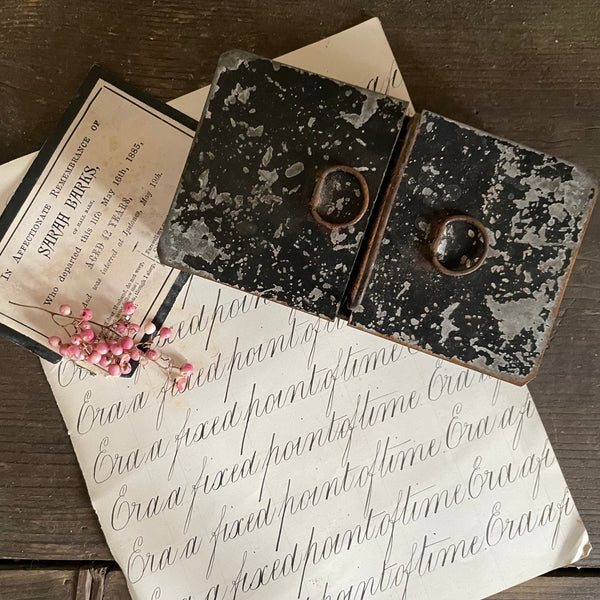 IN AFFECTIONATE REMEMBRANCE OF
SARAH BARKS,
who departed this life May 16th, 1885,
AGED 12 YEARS,
And was interred at Ipstones, May 19th.
Era a fixed point of
Era a fixed point of time.
Era a fixed point of time. Era a
Era a fixed point of time. Era a
Era a fixed point of time. Era a
Era a fixed point of time.
a fixed point of time.